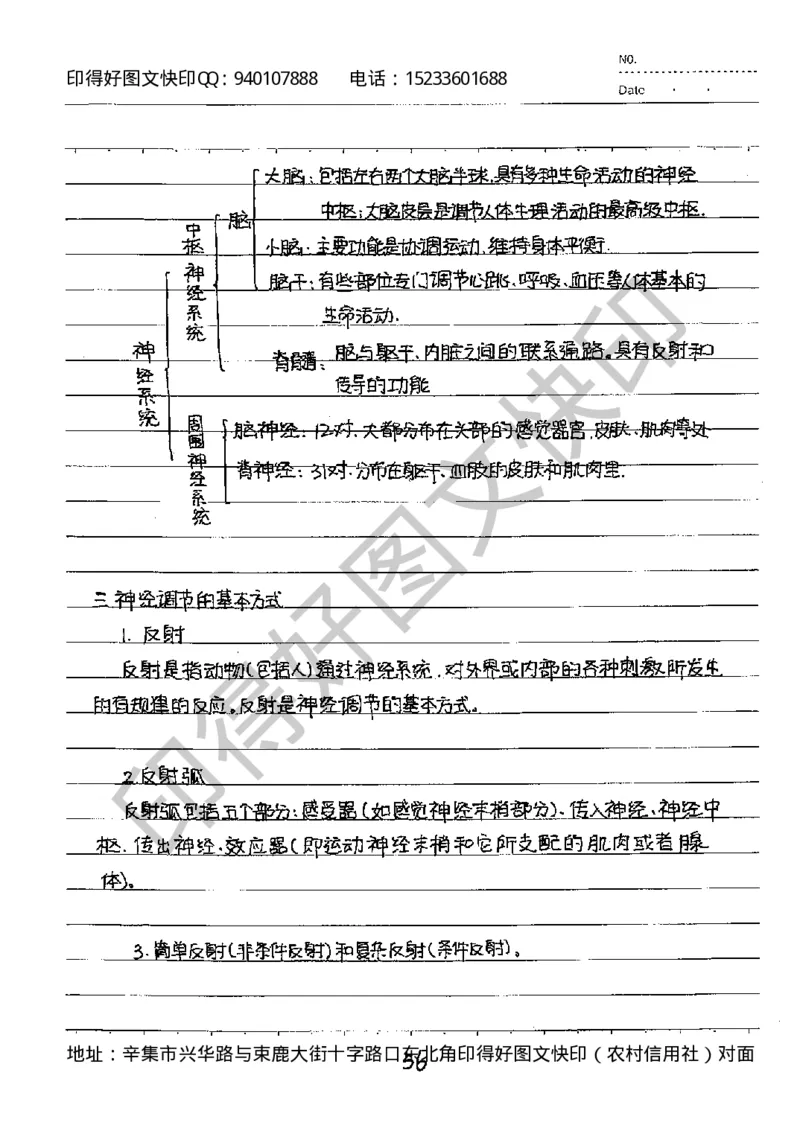 NO.
印得好图文快印QQ：940107888 电话：15233601688
Date
大脑：包括左右两个大脑半球,具有多种生命活动的神经
中枢；大脑皮层是调节人体生理活动的最高级中枢.
脑
中枢神经系统
小脑：主要功能是协调运动,维持身体平衡.
脑干：有些部位专门调节心跳、呼吸、血压等人体基本的
生命活动.
神经系统
脊髓：脑与躯干、内脏之间的联系通路。具有反射和
传导的功能
周围神经系统
脑神经：12对.大都分布在头部的感觉器官、皮肤、肌肉等处
脊神经：31对.分布在躯干、四肢的皮肤和肌肉里.
三.神经调节的基本方式
1. 反射
反射是指动物(包括人)通过神经系统,对外界或内部的各种刺激所发生
的有规律的反应。反射是神经调节的基本方式。
2.反射弧
反射弧包括五个部分：感受器(如感觉神经末梢部分)、传入神经、神经中
枢、传出神经、效应器(即运动神经末梢和它所支配的肌肉或者腺
体)。
3.简单反射(非条件反射)和复杂反射(条件反射)。
地址：辛集市兴华路与束鹿大街十字路口东北角印得好图文快印（农村信用社）对面
56
印得好图文快印